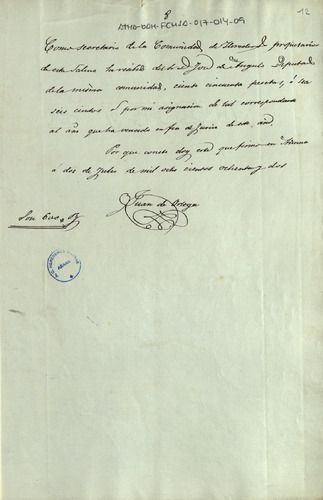 8
12
ATHA-DAH-FCHSA-017-014-09
Como secretario de la Comunidad de Herederos propietarios
de esta Salina he recibido del Sr. D. José de Angulo Diputado
de la misma comunidad, ciento cincuenta pesetas, ó sea
seis cientos r. por mi asignacion de tal correspondiente
al año que ha vencido en fin de Junio de este año.
Por que conste doy este que firmo en Añana
á dos de Julio de mil ocho cientos ochenta y dos
Juan de Orbegn
Son 600 r.
AÑANA